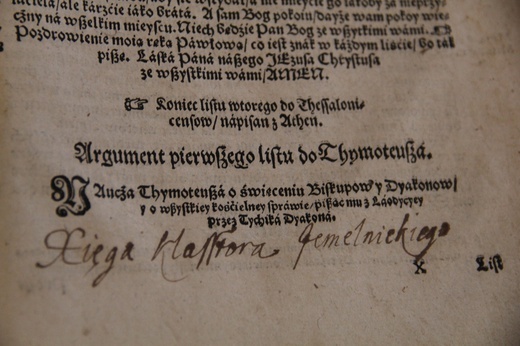 ciela/ale karzcie iáko brátá. A sam Bog pokoiu/dayże wam pokoy wie-
czny ná wßelkim mieyscu. Niech będzie Pan Bog ze wßytkimi wámi.
Pozdrowienie moią ręką Páwłową/co iest znák w káżdym liście/ bo ták
pißę. Łáská Páná náßego JEzusa Chrystusa
ze wßystkimi wámi/AMEN.
☞ Koniec listu wtorego do Thessaloni-
censow/ nápisan z Athen.
Argument pierwßego listu do Thymoteußá.
NAucza Thymoteußá o święceniu Biskupow y Dyakonow/
y o wßystkiey kościelney spráwie/pißąc mu z Láodycyey
przez Tychiká Dyakoná.
Xięga klasstora Jemelnickiego
X List